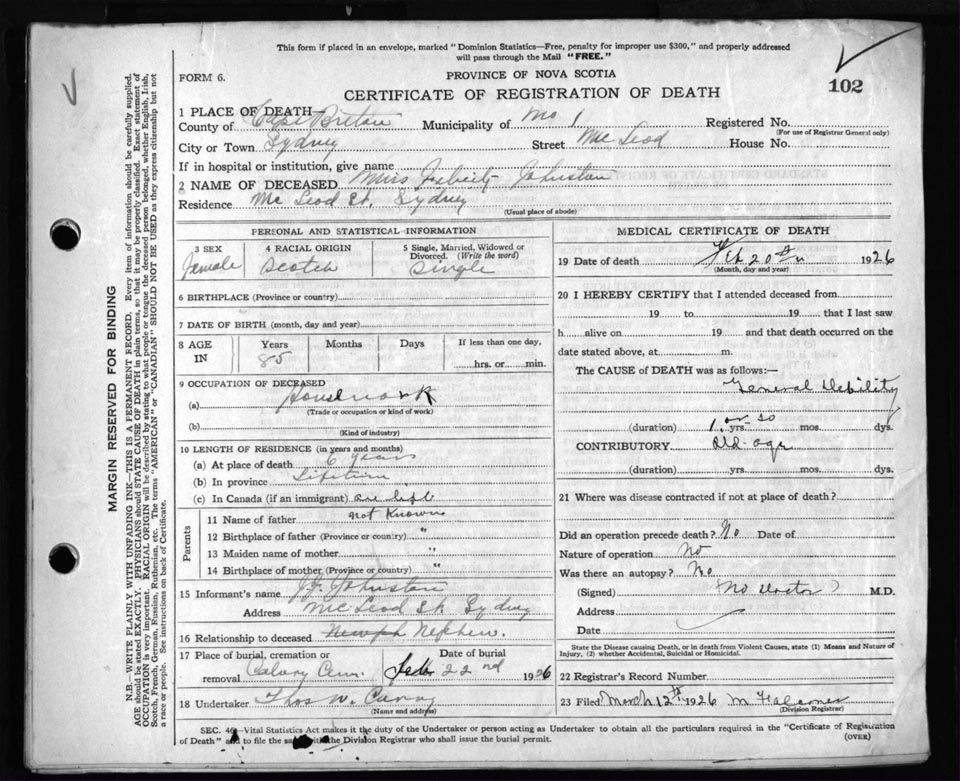 This form if placed in an envelope, marked "Dominion Statistics—Free, penalty for improper use $300," and properly addressed
will pass through the Mail "FREE."
FORM 6.
PROVINCE OF NOVA SCOTIA
102
CERTIFICATE OF REGISTRATION OF DEATH
1 PLACE OF DEATH
County of Cape Breton Municipality of No 1 Registered No.
(For use of Registrar General only)
City or Town Sydney Street Mc Leod House No.
If in hospital or institution, give name
2 NAME OF DECEASED Miss Johnston
Residence Mc Leod St. Sydney
(Usual place of abode)
PERSONAL AND STATISTICAL INFORMATION
3 SEX 4 RACIAL ORIGIN 5 Single, Married, Widowed or
Divorced. (Write the word)
Female Scotch Single
6 BIRTHPLACE (Province or country)
7 DATE OF BIRTH (month, day and year)
8 AGE IN Years Months Days If less than one day,
85 hrs. or min.
9 OCCUPATION OF DECEASED
(a) Housework
(Trade or occupation or kind of work)
(b)
(Kind of industry)
10 LENGTH OF RESIDENCE (in years and months)
(a) At place of death 6 years
(b) In province Lifetime
(c) In Canada (if an immigrant)
Parents
11 Name of father not Known
12 Birthplace of father (Province or country) "
13 Maiden name of mother "
14 Birthplace of mother (Province or country) "
15 Informant's name J. J. Johnston
Address Mc Leod St. Sydney
16 Relationship to deceased Nephew.
17 Place of burial, cremation or Date of burial
removal Calvary Cem. Feb 22nd 1926
18 Undertaker Thos W. Curry
(Name and address)
MEDICAL CERTIFICATE OF DEATH
19 Date of death Feb 20th 1926
(Month, day and year)
20 I HEREBY CERTIFY that I attended deceased from
19 to 19 that I last saw
h alive on 19 and that death occurred on the
date stated above, at m.
The CAUSE of DEATH was as follows:—
General Debility
(duration) 1 or so yrs. mos. dys.
CONTRIBUTORY. Old-age
(duration) yrs. mos. dys.
21 Where was disease contracted if not at place of death?
Did an operation precede death? No Date of
Nature of operation No
Was there an autopsy? No
(Signed) (No doctor) M.D.
Address
Date
State the Disease causing Death, or in death from Violent Causes, state (1) Means and Nature of
Injury, (2) whether Accidental, Suicidal or Homicidal.
22 Registrar's Record Number
23 Filed March 12th 1926 M Falconer
(Division Registrar)
SEC. 46—Vital Statistics Act makes it the duty of the Undertaker or person acting as Undertaker to obtain all the particulars required in the "Certificate of Registration
of Death" and to file the same with the Division Registrar who shall issue the burial permit.
(OVER)
MARGIN RESERVED FOR BINDING
N.B.—WRITE PLAINLY WITH UNFADING INK—THIS IS A PERMANENT RECORD. Every item of information should be carefully supplied.
AGE should be stated EXACTLY. PHYSICIANS should STATE CAUSE OF DEATH in plain terms, so that it may be properly classified. Exact statement of
OCCUPATION is very important. RACIAL ORIGIN will be described by stating to what people or tongue the deceased person belonged, whether English, Irish,
Scotch, French, German, Russian, Ruthenian, etc. The terms "AMERICAN" or "CANADIAN" SHOULD NOT BE USED as they express citizenship but not
a race or people. See instructions on back of Certificate.